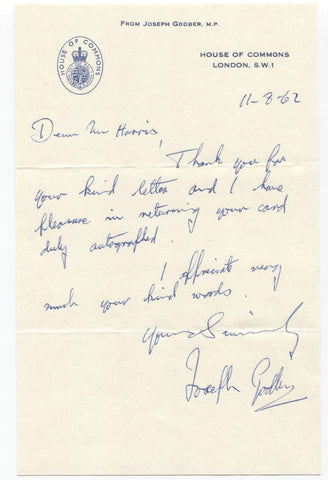 FROM JOSEPH GODBER, M.P.
HOUSE OF COMMONS
HOUSE OF COMMONS
LONDON, S.W.1
11-8-62
Dear Mr Harris!
Thank you for
your kind letter and I have
pleasure in returning your card
duly autographed.
I appreciate very
much your kind words.
Yours Sincerely
Joseph Godber